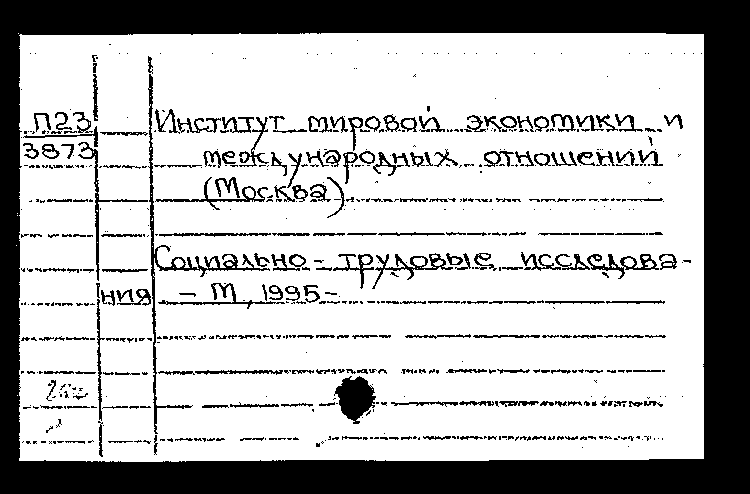 П23 Институт мировой экономики и
3873 международных отношений
(Москва).
Социально-трудовые исследова-
ния - М, 1995-